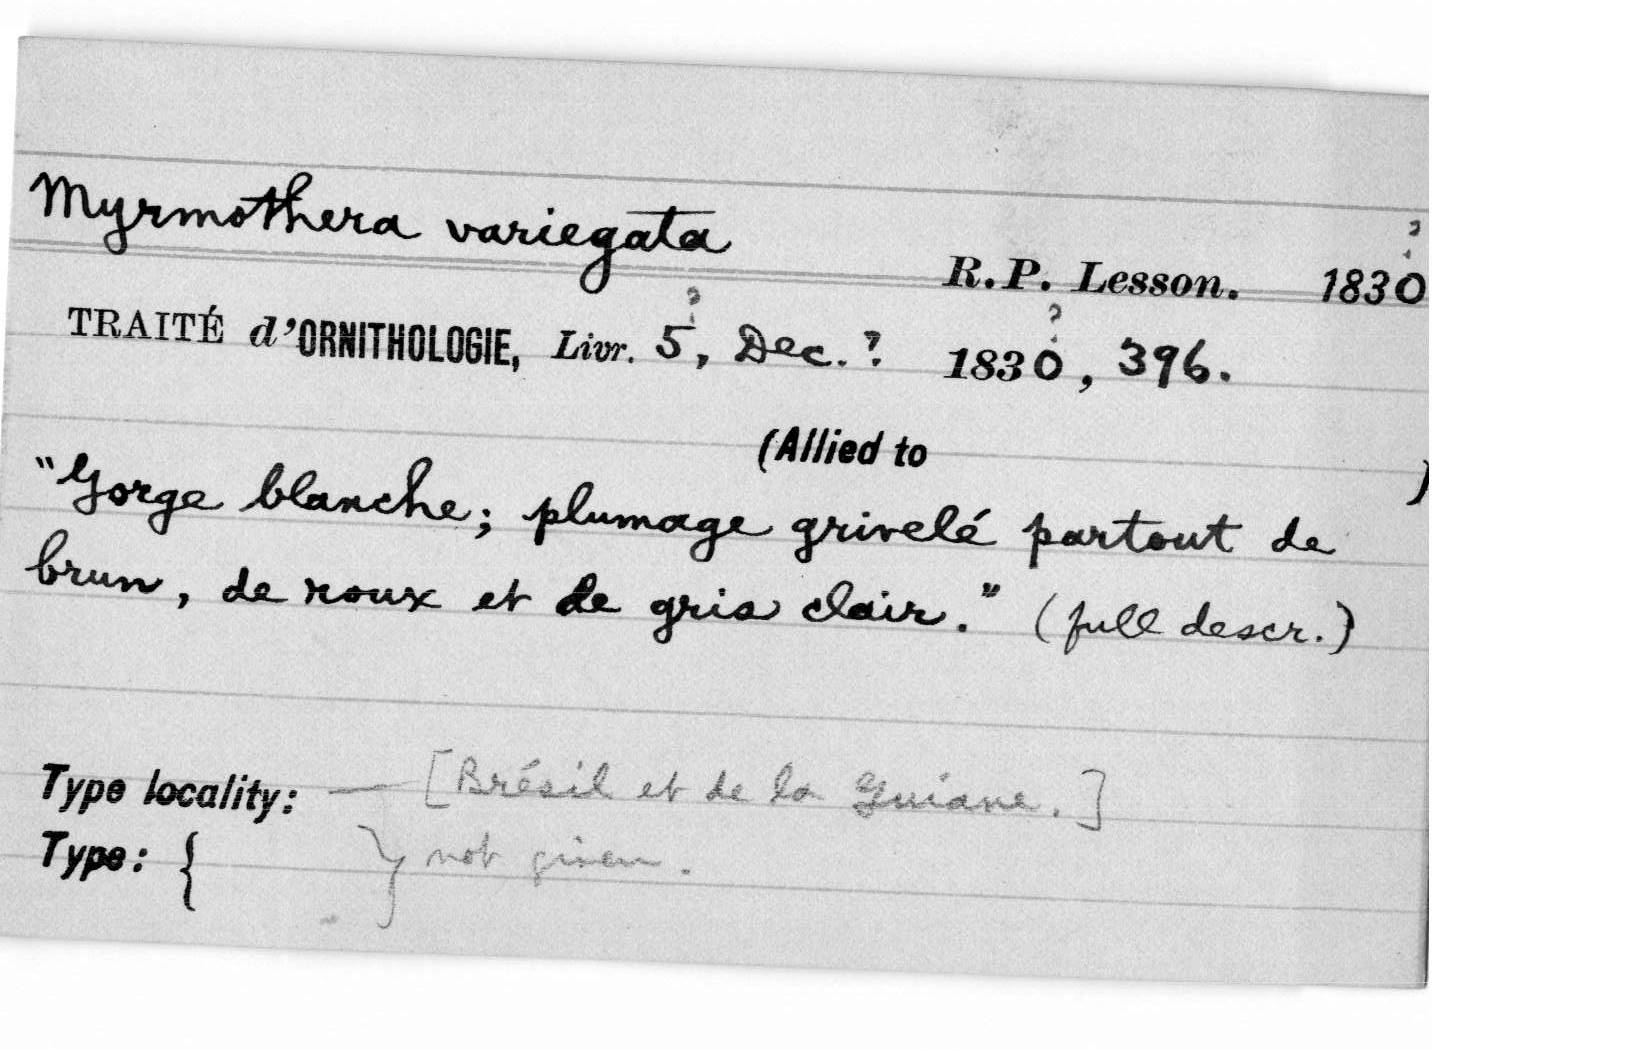 Myrmothera variegata
R.P. Lesson. 1830?
TRAITÉ d'ORNITHOLOGIE, Livr. 5?, Dec.? 1830?, 396.
(Allied to )
"Gorge blanche; plumage grivelé partout de
brun, de roux et de gris clair." (full descr.)
Type locality: — [Brésil et de la Guiane.]
Type: { } not given.